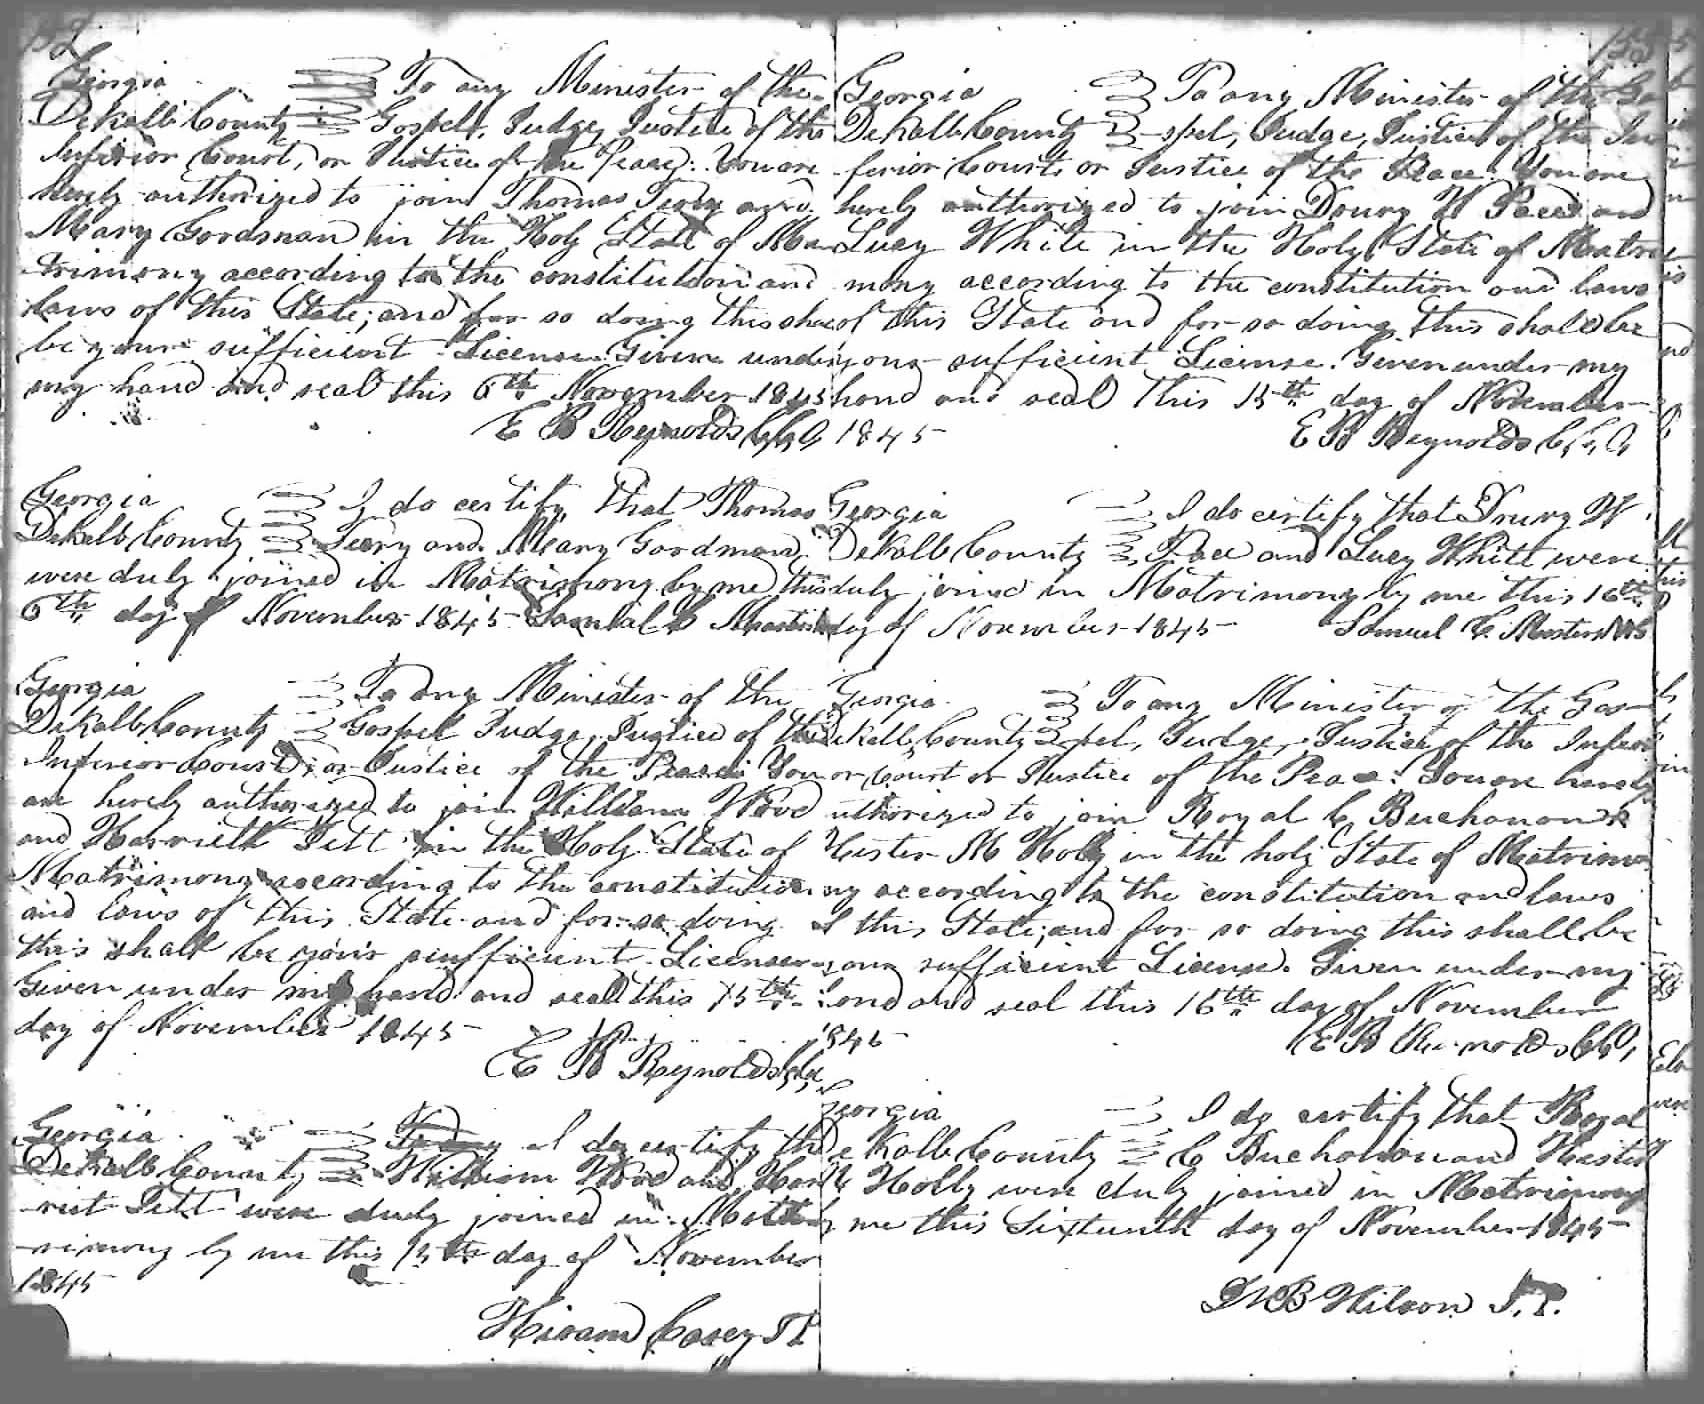 152
Georgia To any Minister of the
DeKalb County Gospel, Judge, Justice of the
Inferior Court, or Justice of the Peace: You are
herely authorized to join Thomas Terry and
Mary Goodman in the Holy State of Ma
trimony according to the constitution and
laws of this State; and for so doing this shall
be your sufficient License. Given under
my hand and seal this 6th November 1845
E B Reynolds C.C.O
Georgia I do certify that Thomas
DeKalb County Terry and Mary Goodman
were duly joined in Matrimony by me this
6th day of November 1845 Samuel C Masters
Georgia To any Minister of the
DeKalb County Gospel Judge, Justice of the
Inferior Court, or Justice of the Peace: You
are herely authorized to join William Wood
and Harriett Pett in the Holy State of
Matrimony according to the constitution
and laws of this State and for so doing
this shall be your sufficient License
Given under my hand and seal this 15th
day of November 1845
E B Reynolds
Georgia To any I do certify tha
DeKalb County William Wood and Har
riet Pett were duly joined in Matt
rimony by me this 15th day of November
1845
Hiram Casey J P
153
Georgia To any Minister of the Go
DeKalb County spel, Judge, Justice of the In
ferior Court or Justice of the Peace: You are
herely authorized to join Drury W Pace and
Lucy White in the Holy State of Matri
mony according to the constitution and laws
of this State and for so doing this shall be
your sufficient License. Given under my
hand and seal this 15th day of November
1845 E B Reynolds C.C.O
Georgia I do certify that Drury W
DeKalb County Pace and Lucy White were
duly joined in Matrimony by me this 16th
day of November 1845 Samuel C Masters MG
Georgia To any Minister of the Gos
DeKalb County pel, Judge, Justice of the Inferi
or Court or Justice of the Peace: You are herely
uthorized to join Royal C Buchanon &
Hester M Holly in the holy State of Matrimo
ny according to the constitution and laws
of this State; and for so doing this shall be
your sufficient License. Given under my
hand and seal this 16th day of November
1845 E B Reynolds
Georgia I do certify that Royal
DeKalb County C Buchanon and Hester
M Holly were duly joined in Matrimony
by me this Sixteenth day of November 1845
B Wilson J.P.